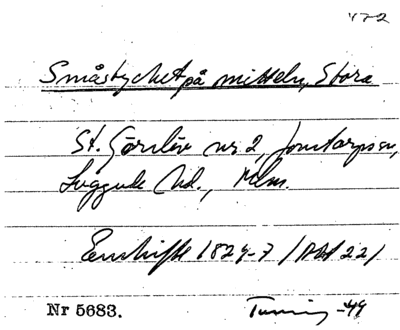 472
Småstycket på mitteln, Stora
St. Görslöv nr 2, Jonstorps sn,
Luggude hd., Mlm.
Enskifte 1824-7 /Akt 22/
Nr 5683. -44